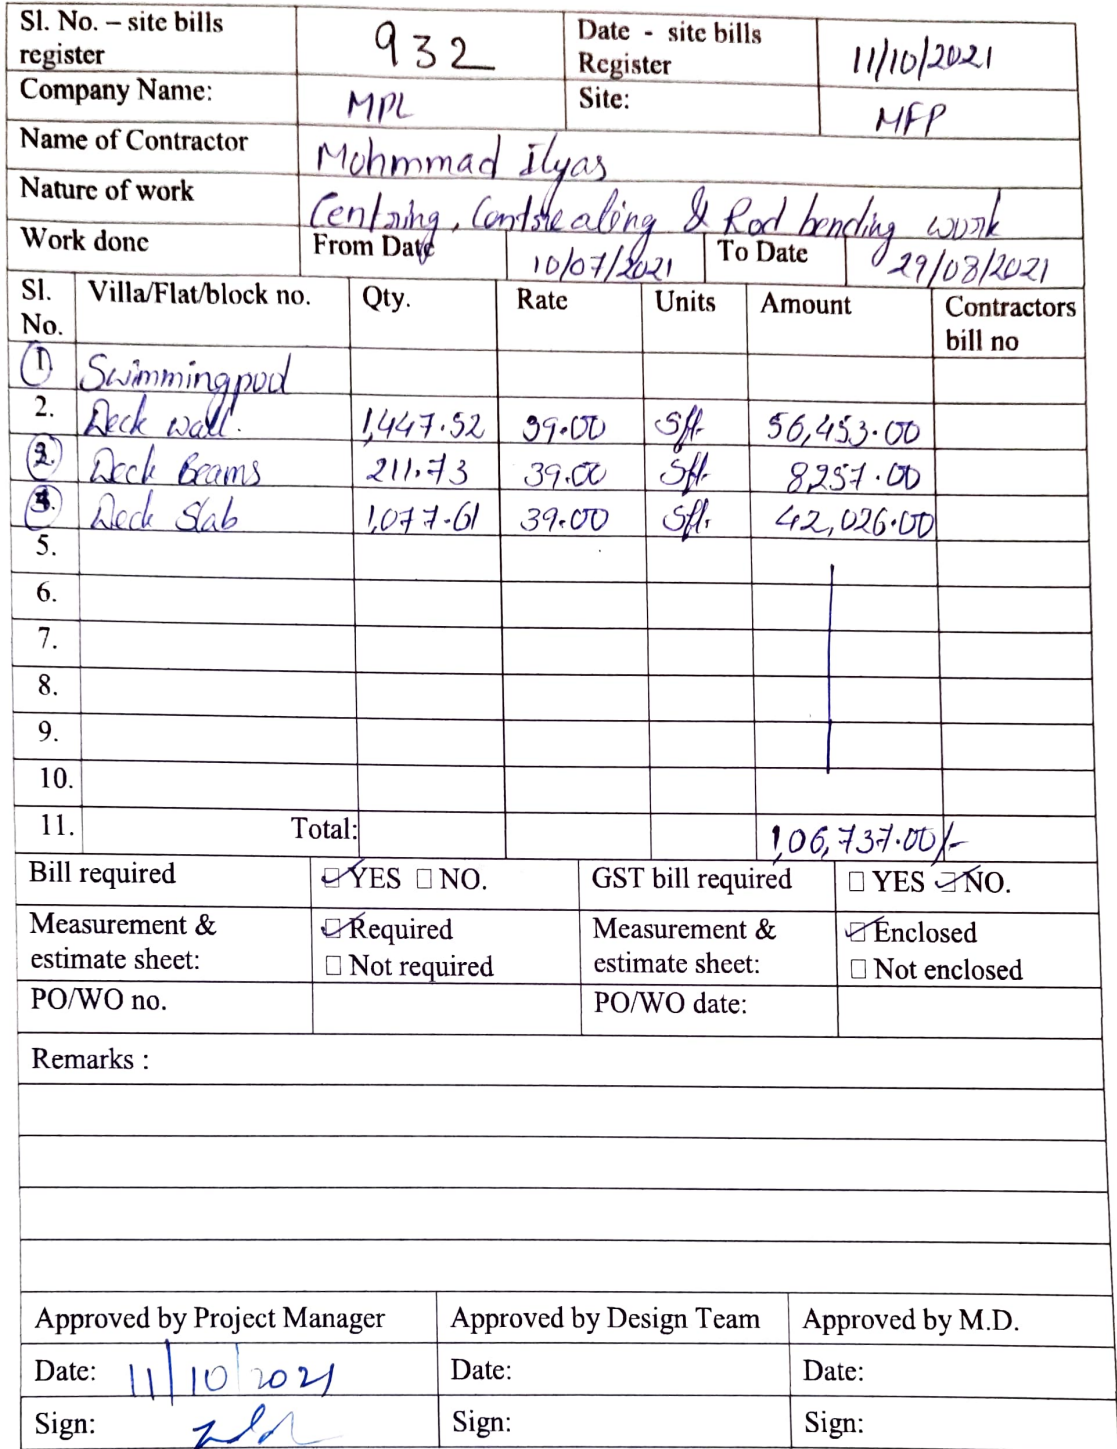 Sl. No. – site bills register 932 Date - site bills Register 11/10/2021
Company Name: MPL Site: MFP
Name of Contractor Mohmmad Ilyas
Nature of work Centring, & Rod bending work
Work done From Date 10/07/2021 To Date 29/08/2021
Sl. No. Villa/Flat/block no. Qty. Rate Units Amount Contractors bill no
1 Swimmingpool
2. Deck wall. 1,447.52 39.00 Sft. 56,453.00
2. Deck Beams 211.73 39.00 Sft. 8,257.00
3. Deck Slab 1,077.61 39.00 Sft. 42,026.00
5.
6.
7.
8.
9.
10.
11. Total: 1,06,737.00/-
Bill required YES NO. GST bill required YES NO.
Measurement & estimate sheet: Required Not required Measurement & estimate sheet: Enclosed Not enclosed
PO/WO no. PO/WO date:
Remarks :
Approved by Project Manager Approved by Design Team Approved by M.D.
Date: 11/10/2021 Date: Date:
Sign: Sign: Sign: